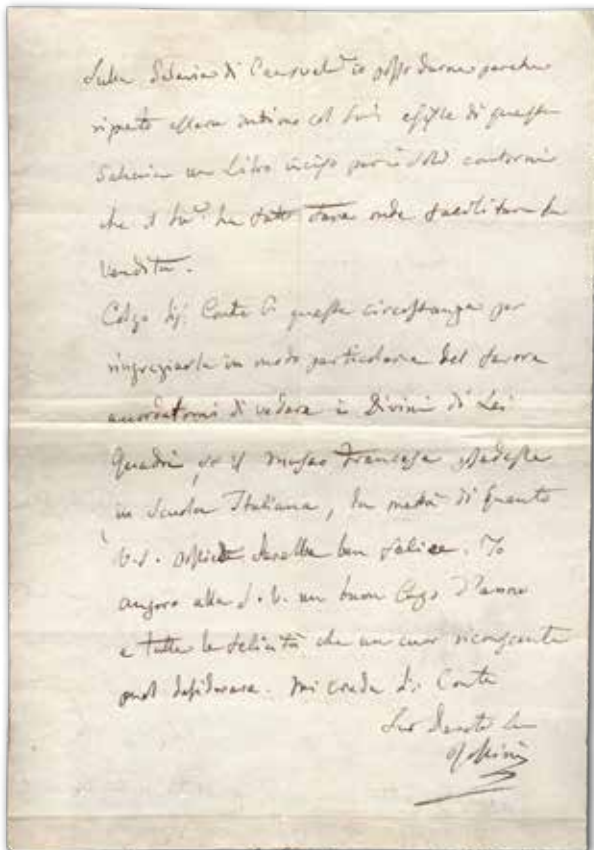 Sulla Galleria di io posso darne parola
essere intimo col Sud. esiste di questa
Galleria un Libro inciso però a soli contorni
che il Sud. ha fatto fare onde facilitare la
vendita.
Colgo Sig. Conte questa circostanza per
ringraziarla in modo particolare del favore
accordatomi di vedere i Divini di Lei
Quadri, se il Museo Francese possedesse
in Scuola Italiana, la metà di quanto
V.S. possiede sarebbe ben felice. Io
auguro alla S.V. un buon Capo d'anno
e tutte le felicità che un cuor riconoscente
può desiderare. Mi creda Sig. Conte
Suo Devoto
Rossini